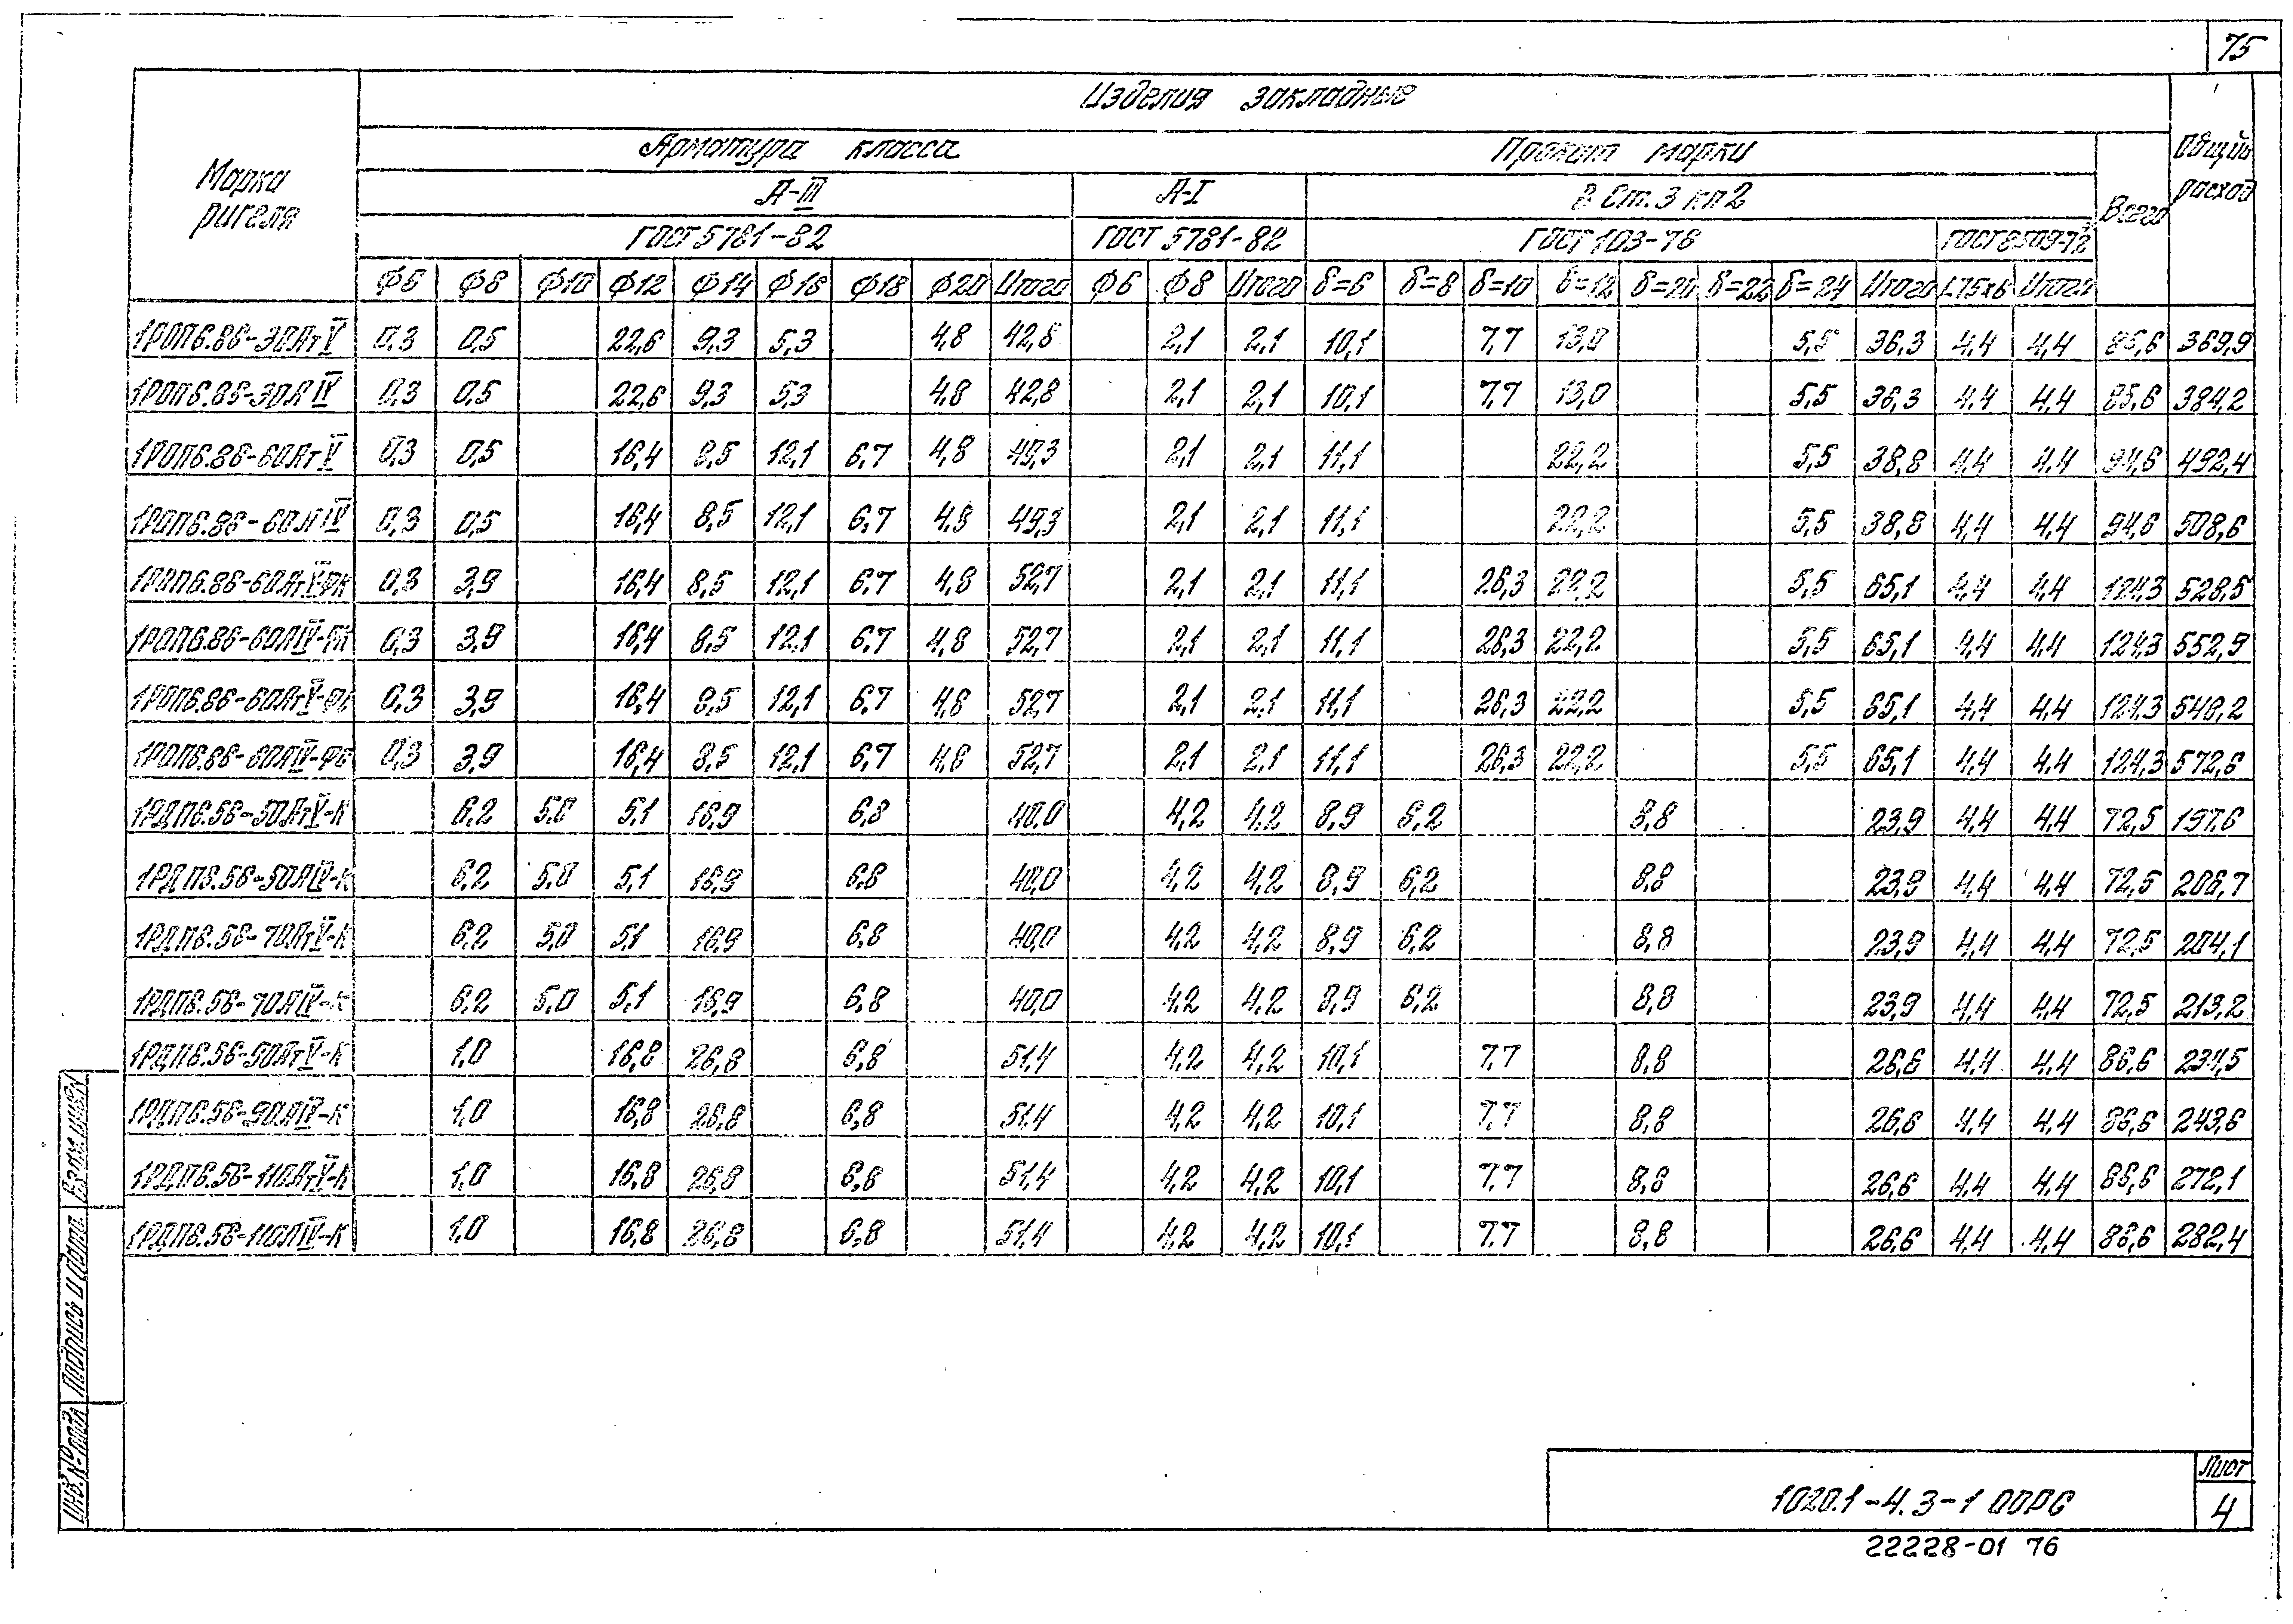 75
Изделия закладные
Марка ригеля
Арматура класса
Прокат марки
Всего
Общий расход
А-III
А-I
В Ст.3 кп2
ГОСТ 5781-82
ГОСТ 5781-82
ГОСТ 103-76
ГОСТ 8509-72
Ф6 Ф8 Ф10 Ф12 Ф14 Ф16 Ф18 Ф20 Итого Ф6 Ф8 Итого δ=6 δ=8 δ=10 δ=12 δ=20 δ=22 δ=24 Итого L75x6 Итого
1РОП6.86-30АтV 0,3 0,5 22,6 9,3 5,3 4,8 42,8 2,1 2,1 10,1 7,7 13,0 5,5 36,3 4,4 4,4 85,6 369,9
1РОП6.86-30АIV 0,3 0,5 22,6 9,3 5,3 4,8 42,8 2,1 2,1 10,1 7,7 13,0 5,5 36,3 4,4 4,4 85,6 384,2
1РОП6.86-60АтV 0,3 0,5 16,4 8,5 12,1 6,7 4,8 49,3 2,1 2,1 11,1 22,2 5,5 38,8 4,4 4,4 94,6 492,4
1РОП6.86-60АIV 0,3 0,5 16,4 8,5 12,1 6,7 4,8 49,3 2,1 2,1 11,1 22,2 5,5 38,8 4,4 4,4 94,6 508,6
1РОП6.86-60АтV-ФК 0,3 3,9 16,4 8,5 12,1 6,7 4,8 52,7 2,1 2,1 11,1 26,3 22,2 5,5 65,1 4,4 4,4 124,3 528,5
1РОП6.86-60АIV-ФК 0,3 3,9 16,4 8,5 12,1 6,7 4,8 52,7 2,1 2,1 11,1 26,3 22,2 5,5 65,1 4,4 4,4 124,3 552,9
1РОП6.86-60АтV-ФС 0,3 3,9 16,4 8,5 12,1 6,7 4,8 52,7 2,1 2,1 11,1 26,3 22,2 5,5 65,1 4,4 4,4 124,3 548,2
1РОП6.86-60АIV-ФС 0,3 3,9 16,4 8,5 12,1 6,7 4,8 52,7 2,1 2,1 11,1 26,3 22,2 5,5 65,1 4,4 4,4 124,3 572,6
1РДП6.56-50АтV-К 6,2 5,0 5,1 16,9 6,8 40,0 4,2 4,2 8,9 6,2 8,8 23,9 4,4 4,4 72,5 197,6
1РДП6.56-50АIV-К 6,2 5,0 5,1 16,9 6,8 40,0 4,2 4,2 8,9 6,2 8,8 23,9 4,4 4,4 72,5 206,7
1РДП6.56-70АтV-К 6,2 5,0 5,1 16,9 6,8 40,0 4,2 4,2 8,9 6,2 8,8 23,9 4,4 4,4 72,5 204,1
1РДП6.56-70АIV-К 6,2 5,0 5,1 16,9 6,8 40,0 4,2 4,2 8,9 6,2 8,8 23,9 4,4 4,4 72,5 213,2
1РДП6.56-90АтV-К 1,0 16,8 26,8 6,8 51,4 4,2 4,2 10,1 7,7 8,8 26,6 4,4 4,4 86,6 234,5
1РДП6.56-90АIV-К 1,0 16,8 26,8 6,8 51,4 4,2 4,2 10,1 7,7 8,8 26,6 4,4 4,4 86,6 243,6
1РДП6.56-110АтV-К 1,0 16,8 26,8 6,8 51,4 4,2 4,2 10,1 7,7 8,8 26,6 4,4 4,4 86,6 272,1
1РДП6.56-110АIV-К 1,0 16,8 26,8 6,8 51,4 4,2 4,2 10,1 7,7 8,8 26,6 4,4 4,4 86,6 282,4
Взам.инв.№
Подпись и дата
Инв.№ подл.
1020.1-4.3-1 00РС
Лист
4
22228-01 76